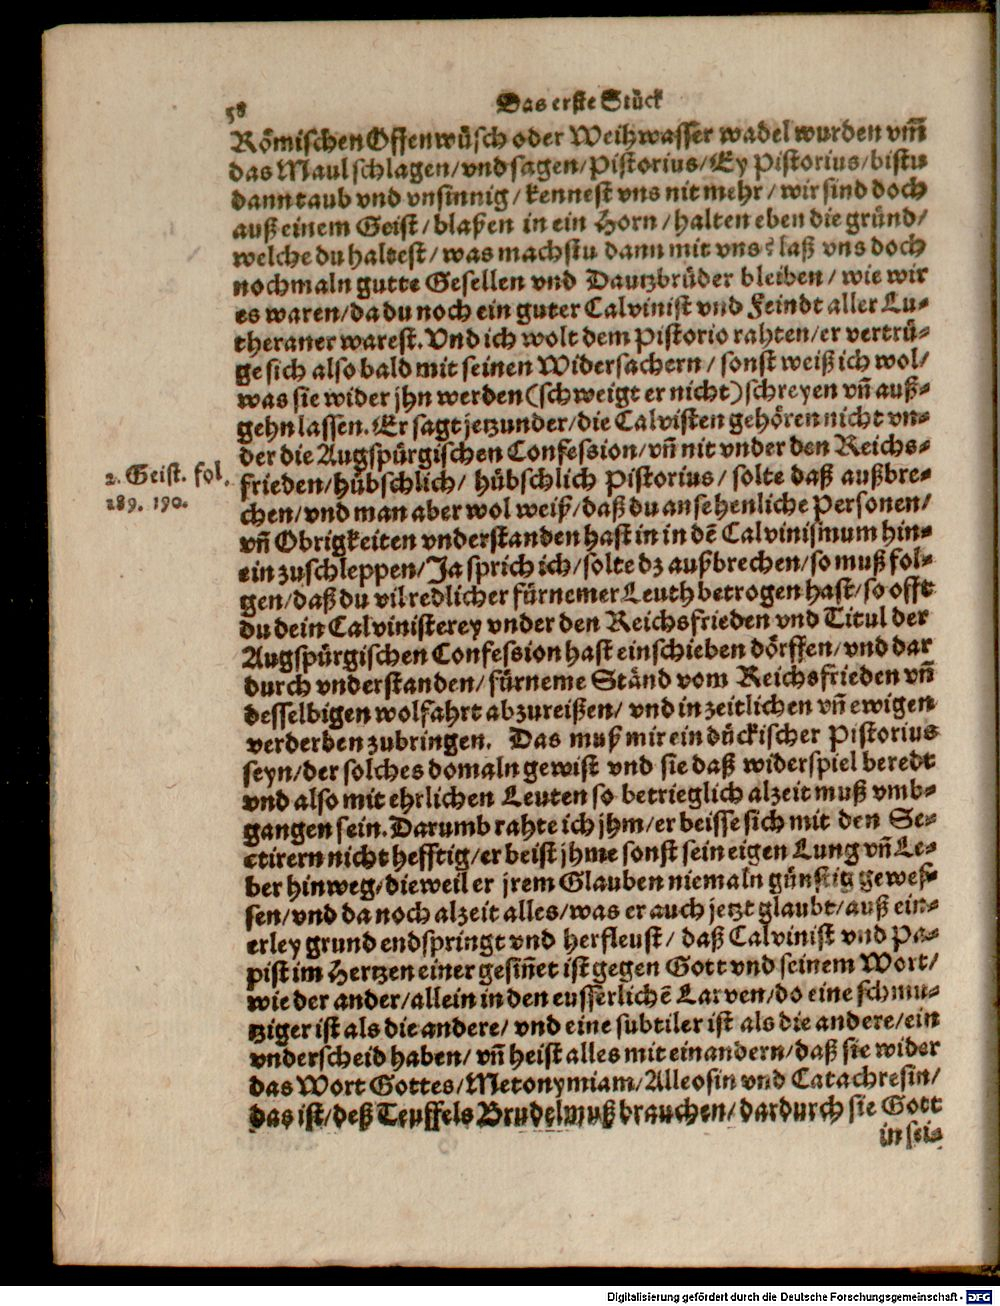 58
Das erste Stück
Römischen Offenwüsch oder Weihwasser wadel wurden vm̃
das Maul schlagen/vnd sagen/Pistorius/Ey Pistorius/bistu
dann taub vnd vnsinnig/kennest vns nit mehr/wir sind doch
auß einem Geist/blaßen in ein Horn/halten eben die gründ/
welche du haltest/was machstu dann mit vns? laß vns doch
nochmaln gutte Gesellen vnd Dautzbrüder bleiben/wie wir
es waren/da du noch ein guter Calvinist vnd Feindt aller Lu-
theraner warest. Vnd ich wolt dem Pistorio rahten/er vertrü-
ge sich also bald mit seinen Widersachern/sonst weiß ich wol/
was sie wider jhn werden (schweigt er nicht) schreyen vñ auß-
gehn lassen. Er sagt jetzunder/die Calvisten gehören nicht vn-
der die Augspürgischen Confession/vñ nit vnder den Reichs-
2. Geist. fol.
189. 190.
frieden/hübschlich/ hübschlich Pistorius/ solte daß außbre-
chen/vnd man aber wol weiß/daß du ansehenliche Personen/
vñ Obrigkeiten vnderstanden hast in in dẽ Calvinismum hin-
ein zuschleppen/Ja sprich ich/solte dz außbrechen/so muß fol-
gen/daß du vil redlicher fürnemer Leuth betrogen hast/so offt
du dein Calvinisterey vnder den Reichsfrieden vnd Titul der
Augspürgischen Confession hast einschieben dörffen/vnd dar
durch vnderstanden/fürneme Ständ vom Reichsfrieden vñ
desselbigen wolfahrt abzureißen/ vnd in zeitlichen vñ ewigen
verderben zubringen. Das muß mir ein dückischer Pistorius
seyn/der solches domaln gewist vnd sie daß widerspiel beredt
vnd also mit ehrlichen Leuten so betrieglich alzeit muß vmb-
gangen sein. Darumb rahte ich jhm/er beisse sich mit den Se-
ctirern nicht hefftig/er beist jhme sonst sein eigen Lung vñ Le-
ber hinweg/dieweil er jrem Glauben niemaln günstig gewes-
sen/vnd da noch alzeit alles/was er auch jetzt glaubt/auß ein-
erley grund endspringt vnd herfleust/ daß Calvinist vnd Pa-
pist im Hertzen einer gesiñet ist gegen Gott vnd seinem Wort/
wie der ander/allein in den eusserlichẽ Larven/do eine schmu-
tziger ist als die andere/ vnd eine subtiler ist als die andere/ein
vnderscheid haben/ vñ heist alles mit einandern/daß sie wider
das Wort Gottes/Metonymiam/Alleosin vnd Catachresin/
das ist/deß Teuffels Brudelmuß brauchen/dardurch sie Gott
in sei-
Digitalisierung gefördert durch die Deutsche Forschungsgemeinschaft - DFG